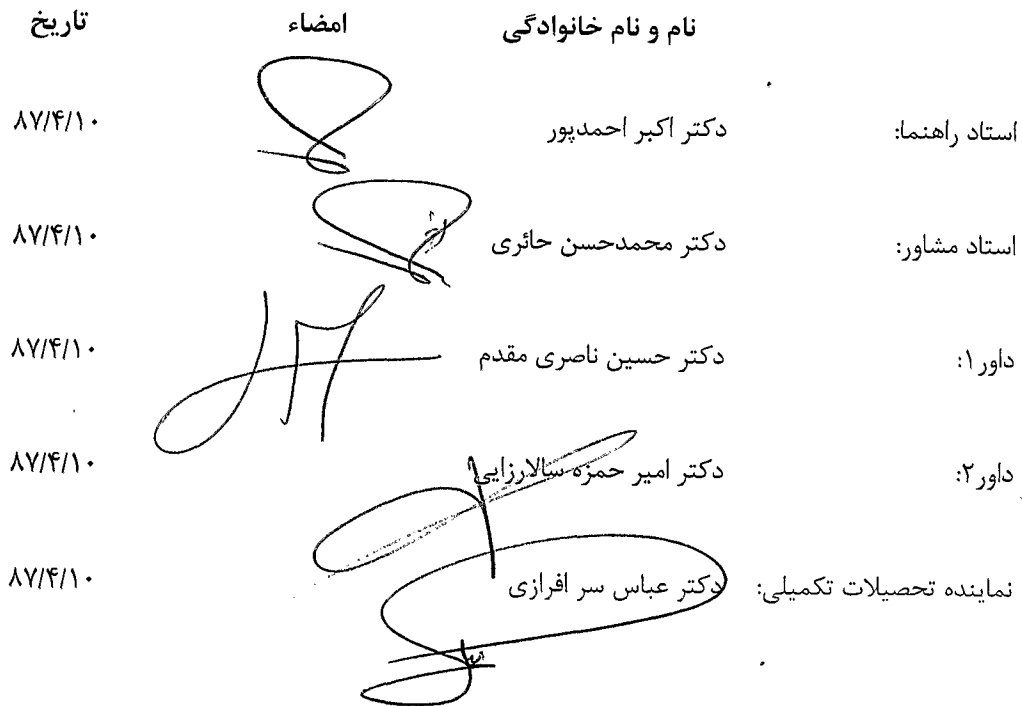 نام و نام خانوادگی امضاء تاریخ
استاد راهنما: دکتر اکبر احمدپور ۸۷/۴/۱۰
استاد مشاور: دکتر محمدحسن حائری ۸۷/۴/۱۰
داور۱: دکتر حسین ناصری مقدم ۸۷/۴/۱۰
داور۲: دکتر امیر حمزه سالارزایی ۸۷/۴/۱۰
نماینده تحصیلات تکمیلی: دکتر عباس سر افرازی ۸۷/۴/۱۰